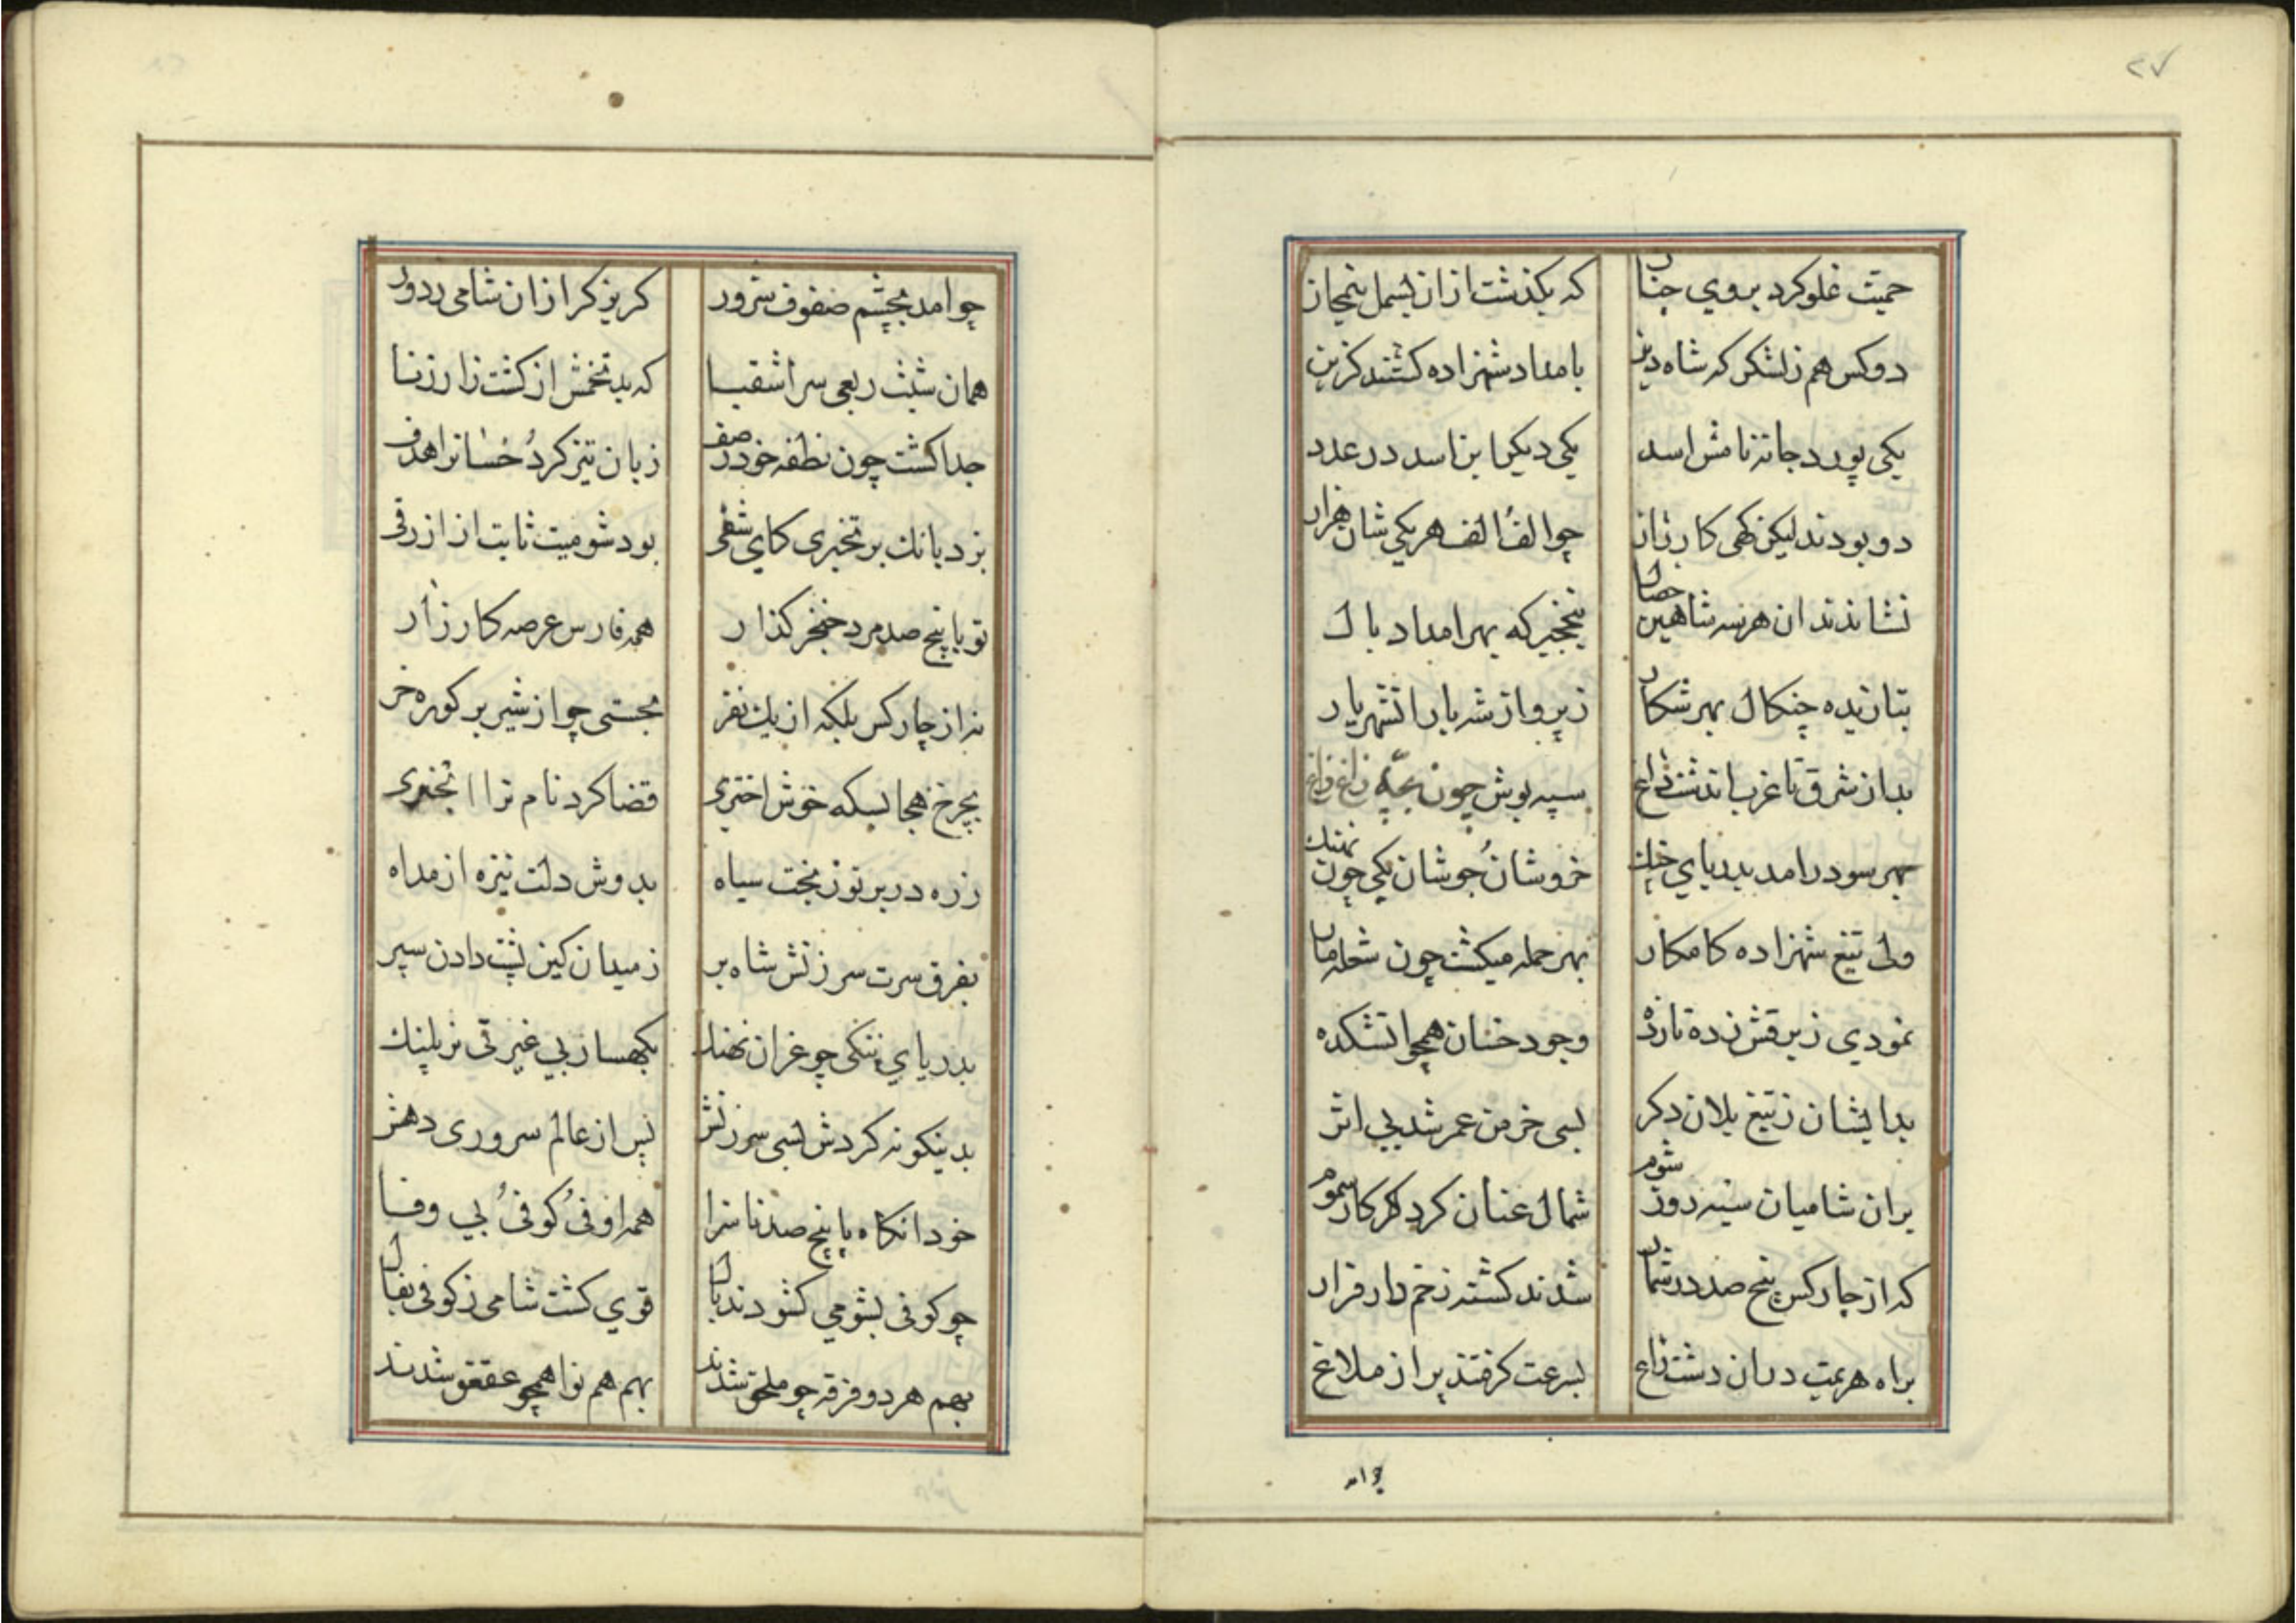 ۲۷
حمیت غلو کرد بروی چنان که بکذشت ازان بسمل نیمجان
دو کس هم ز لشکر که شاه دین بامداد شهزاده کشتند کزین
یکی پور دجانه نامش اسد یکی دیکر ابن اسد در عدد
دو بودند لیکن کهی کارزار چو الف الف هر یکی شان هزار
نشاندند ان هر سه شاهین خصال بنخجیر که بهر امداد بال
بتازیده چنکال بهر شکار ز پرواز شه باز اتشهریار
بدان شرق تا غرب اندشت زاغ سیه پوش چون بچه زاغ زاغ
بهر سو درامد بدریای جنك خروشان جوشان یکی چون نهنك
ولی تیغ شهزاده کامکار بهر حمله میکشت چون شعله مار
نمودی ز برقش زده تا رده وجود خسان همچو اتشکده
بدایشان ز تیغ یلان دکر بسی خرمن عمر شد بی اثر
بران شامیان سیه روز شوم شمال عنان کرد کر کار سموم
که از چار کس پنج صد در شمار شدند کشته زخم دار فرار
براه هزیمت دران دشت زاغ بسرعت کرفتند پر از ملاغ
چو امد
چو امد بچشم صفوف شرور کریز کرازان شامی ز دور
همان شبث ربعی سر اشقیا که بد تخمش از کشت زار زنا
جدا کشت چون نطفه خود ز صف زبان تیز کرد خسانرا هدف
بزد بانك بر تختری کای شقی بود شومیت ثابت از ازرقی
تو با پنج صد مرد خنجر کذار همه فارس عرصه کارزار
نه از چار کس بلکه از یك نفر بجستی چو از شیر بر کوره خر
بچرخ هجا بسکه خوش اختری قضا کرد نام ترا تختری
زره در بر تو ز بخت سیاه بدوش دلت نیزه از مد اه
بفرق سرت سرزنش شاه پر ز میدان کین پشت دادن سپر
بدریای ننکی چو غران نهنك بکهسار بی غیرتی نر پلنك
بدینکونه کردش بسی سرزنش پس از عالم سروری دهش
خود انکاه با پنج صد ناسزا همه اوفی کوفی بی وفا
چو کوفی بشومی کشودند بال قوی کشت شامی ز کوفی بفال
بهم هر دو فرقه چو ملحق شدند بهم هم نوا همچو عقعق شدند